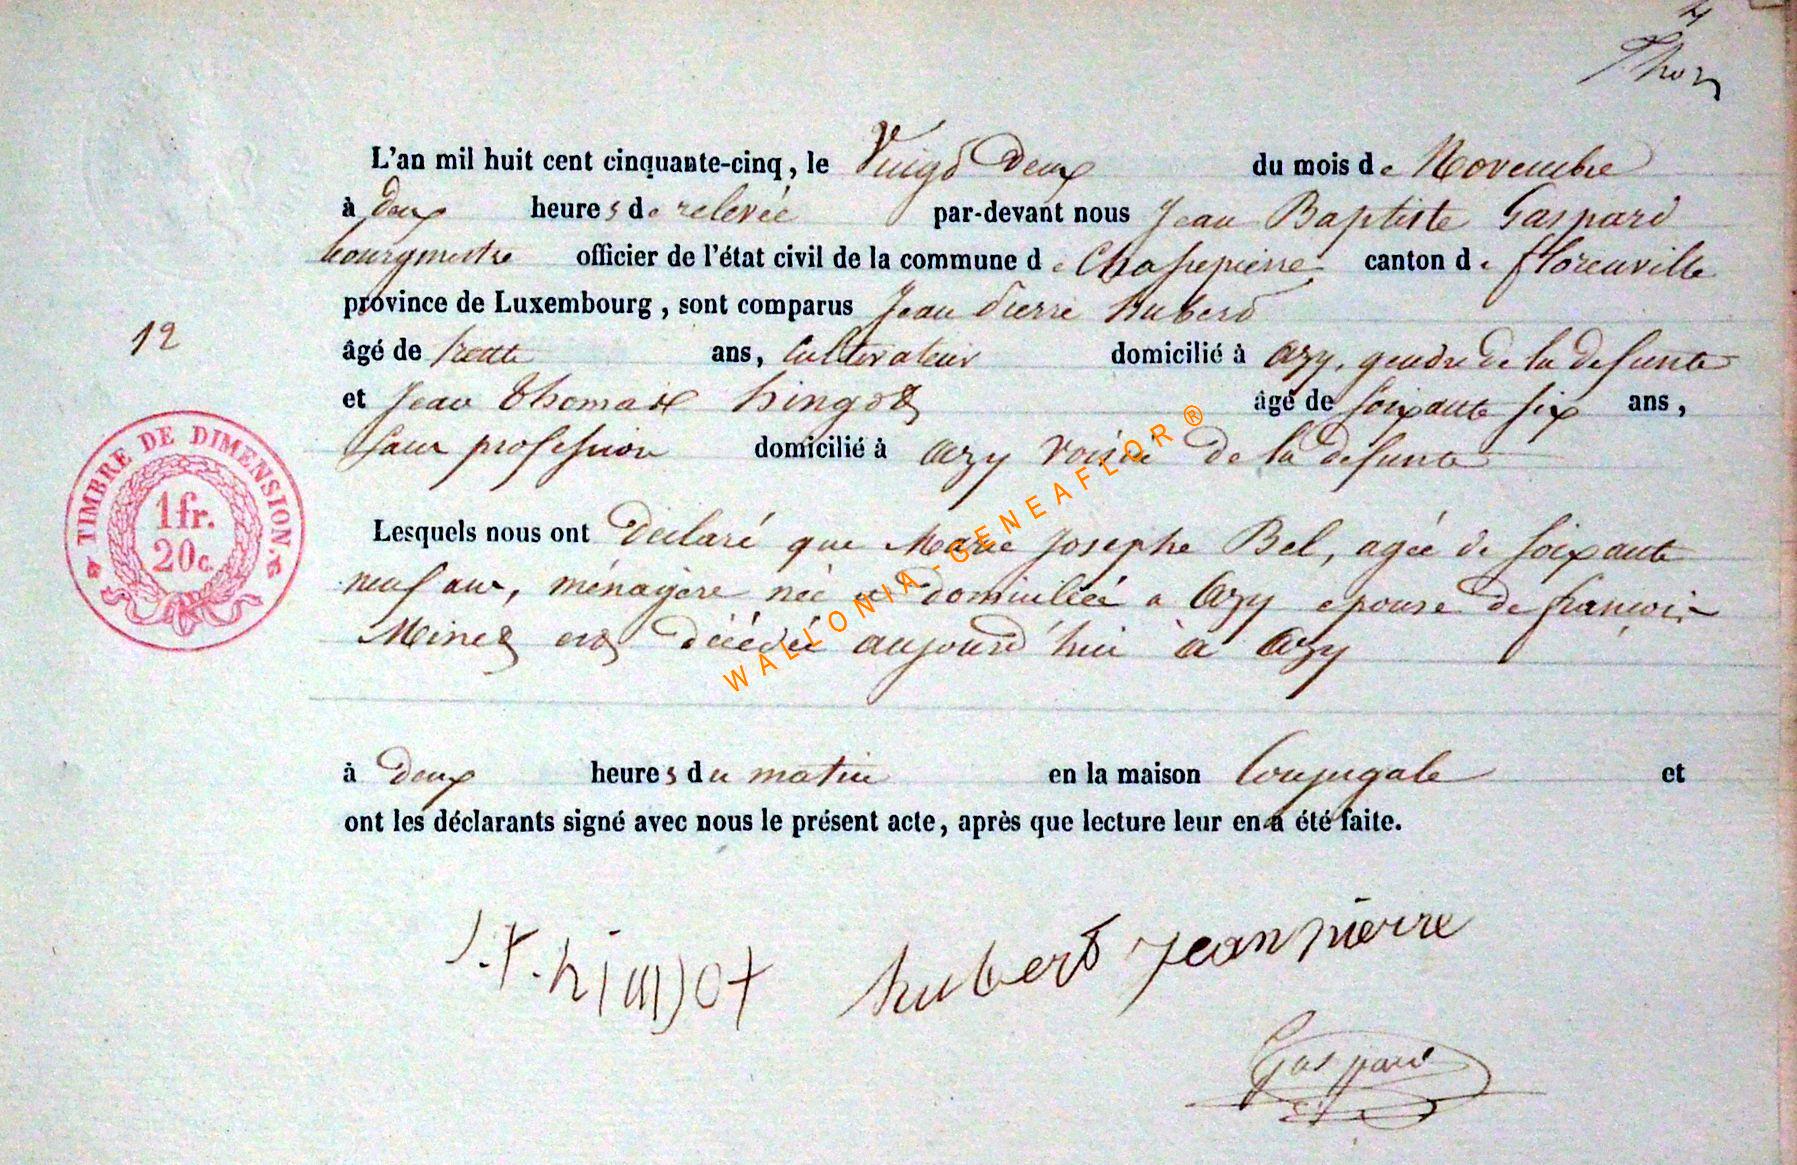 4
L'an mil huit cent cinquante-cinq, le Vingt Deux du mois de Novembre
à deux heures de relevée par-devant nous Jean Baptiste Gaspard
bourgmestre officier de l'état civil de la commune de Chassepierre canton de florenville
province de Luxembourg, sont comparus Jean Pierre hubert
12
âgé de trente ans, Cultivateur domicilié à azy, gendre de la defunte
et Jean Thomas hingot âgé de soixante six ans,
Sans profession domicilié à azy voisin de la defunte
TIMBRE DE DIMENSION.
1fr.
20c.
WALLONIA-GENEAFLOR®
Lesquels nous ont Déclaré que Marie Josephe Bel, agée de soixante
neuf ans, ménagère née et domiciliée a azy epouse de françois
Minet est décédée aujourd'hui à azy
à deux heures du matin en la maison Conjugale et
ont les déclarants signé avec nous le présent acte, après que lecture leur en a été faite.
J. T. hingot hubert Jean pierre
Gaspard